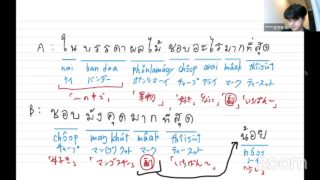 A : ในบรรดาผลไม้ ชอบอะไรมากที่สุด
nai ban daa phǒnlamáay chɔ̂ɔp arai mâak thîisùt
ナイ バンダー ポンラマーイ チョープ アライ マーク ティースット
「～の中で」 「果物」 「好き」「なに」 「いちばん～」
B : ชอบมังคุดมากที่สุด
chɔ̂ɔp maŋ khút mâak thîisùt
チョープ マンクット マーク ティースット
「好き」 「マンゴスチン」 「いちばん～」
น้อย
nɔ́ɔy
ノーイ
zoom